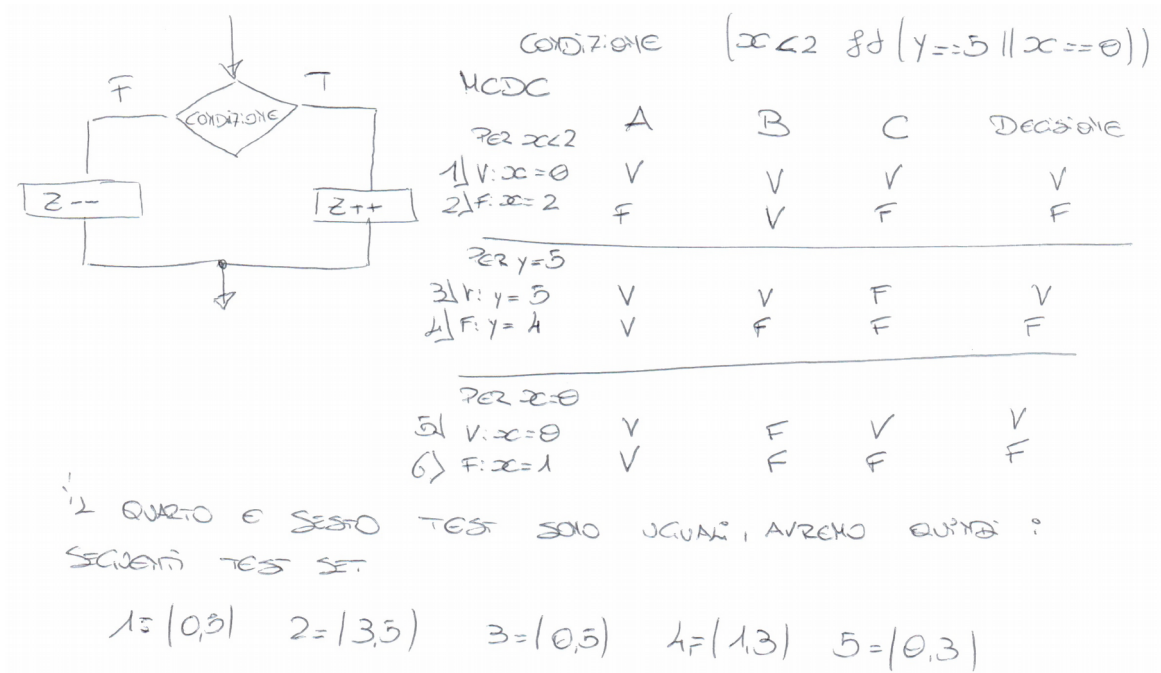 CONDIZIONE (x<2 && (y==5 || x==0))
F T
CONDIZIONE
Z-- Z++
MCDC
PER x<2 A B C DECISIONE
1) V: x=0 V V V V
2) F: x=2 F V F F
PER y=5
3) V: y=5 V V F V
4) F: y=4 V F F F
PER x=0
5) V: x=0 V F V V
6) F: x=1 V F F F
IL QUARTO E SESTO TEST SONO UGUALI, AVREMO QUINDI i
SEGUENTI TEST SET
1=(0,5) 2=(3,5) 3=(0,5) 4=(1,3) 5=(0,3)